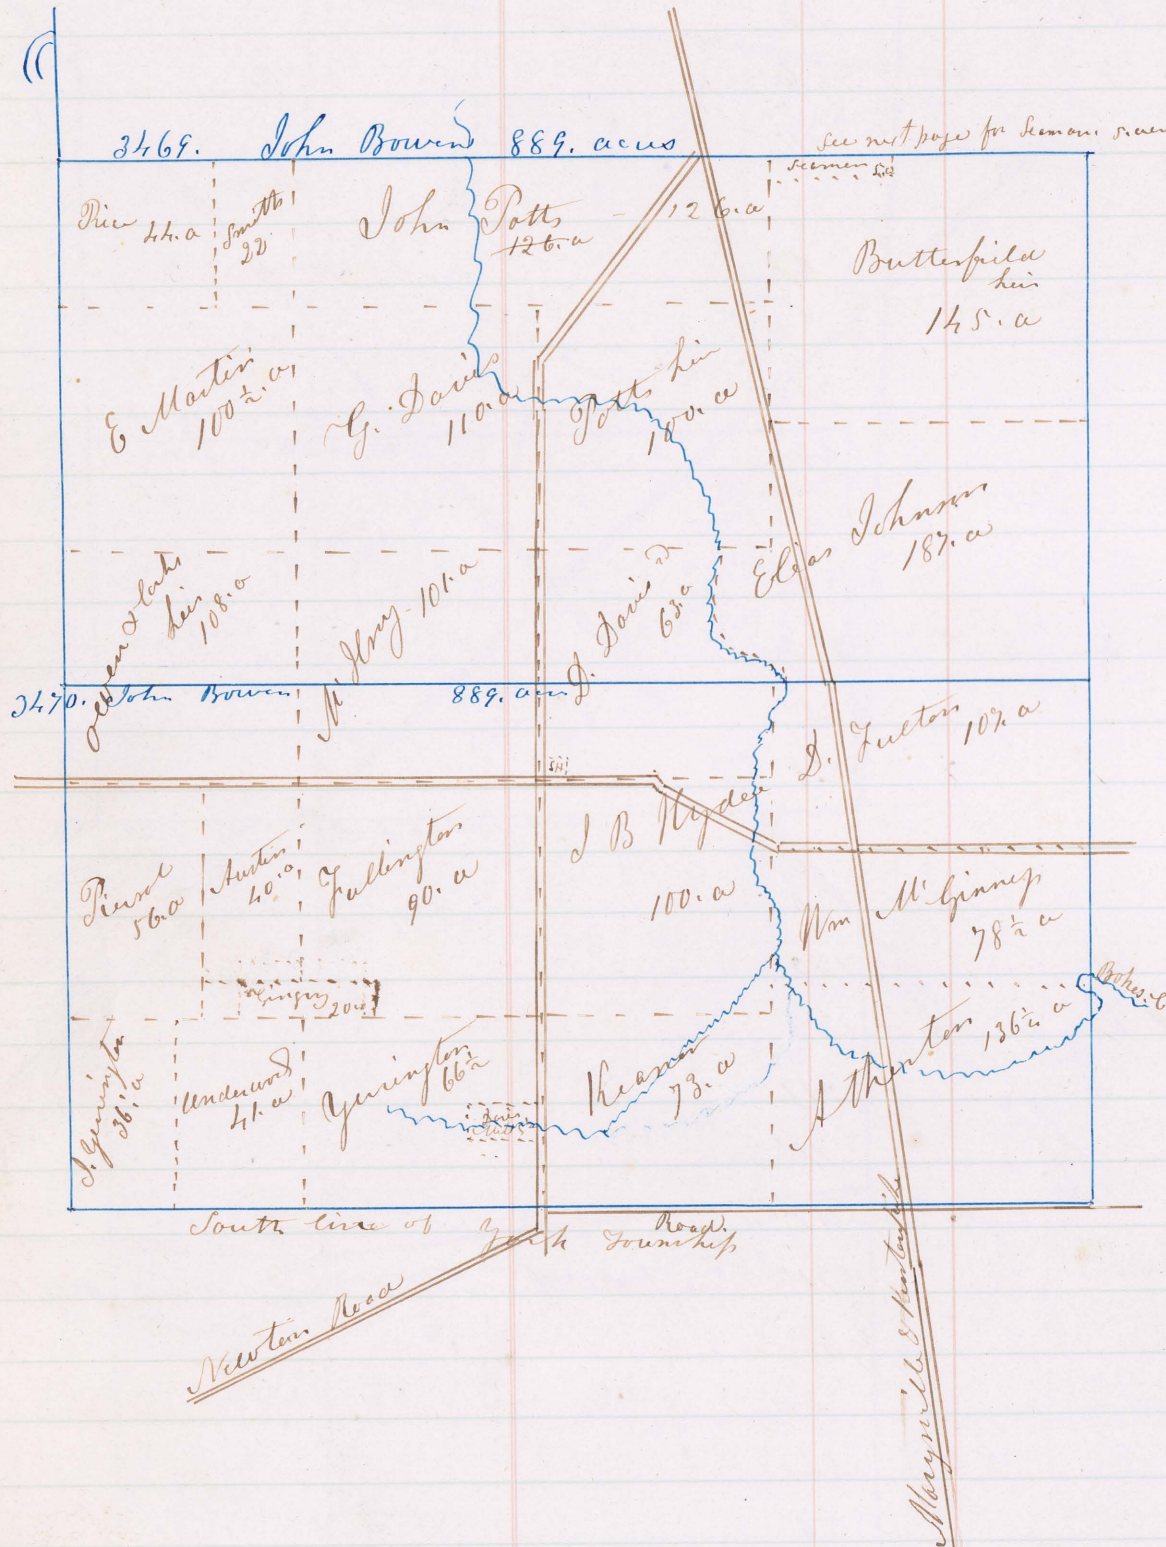 3469. John Bowen 889. acres
see next page for Seaman. 5. acres
Seamen 5.a
Price 44.a
Smith
22
John Potts - 126.a
126.a
Butterfield
heir
145.a
E Martin
100 ½.a
G. Davis
110.a
Potts heir
100.a
Elias Johnson
187.a
heir
108.a
M. Ilroy 101.a
D. Davis
63.a
3470. John Bowen 889. acres
D. Fulton 107.a
Piersol
56.a
Austin
40.a
Fullington
90.a
J B Hyde
100.a
Wm McGinnis
78 ½ a
20.a
Bokes. C
S. Yearington
36.a
Underwood
41.a
Yearington
66 ½
Davis
Keasner
73.a
Atherton 136 ½ a
South line of York Township
Road.
Newton Road
Marysville & Kenton pike